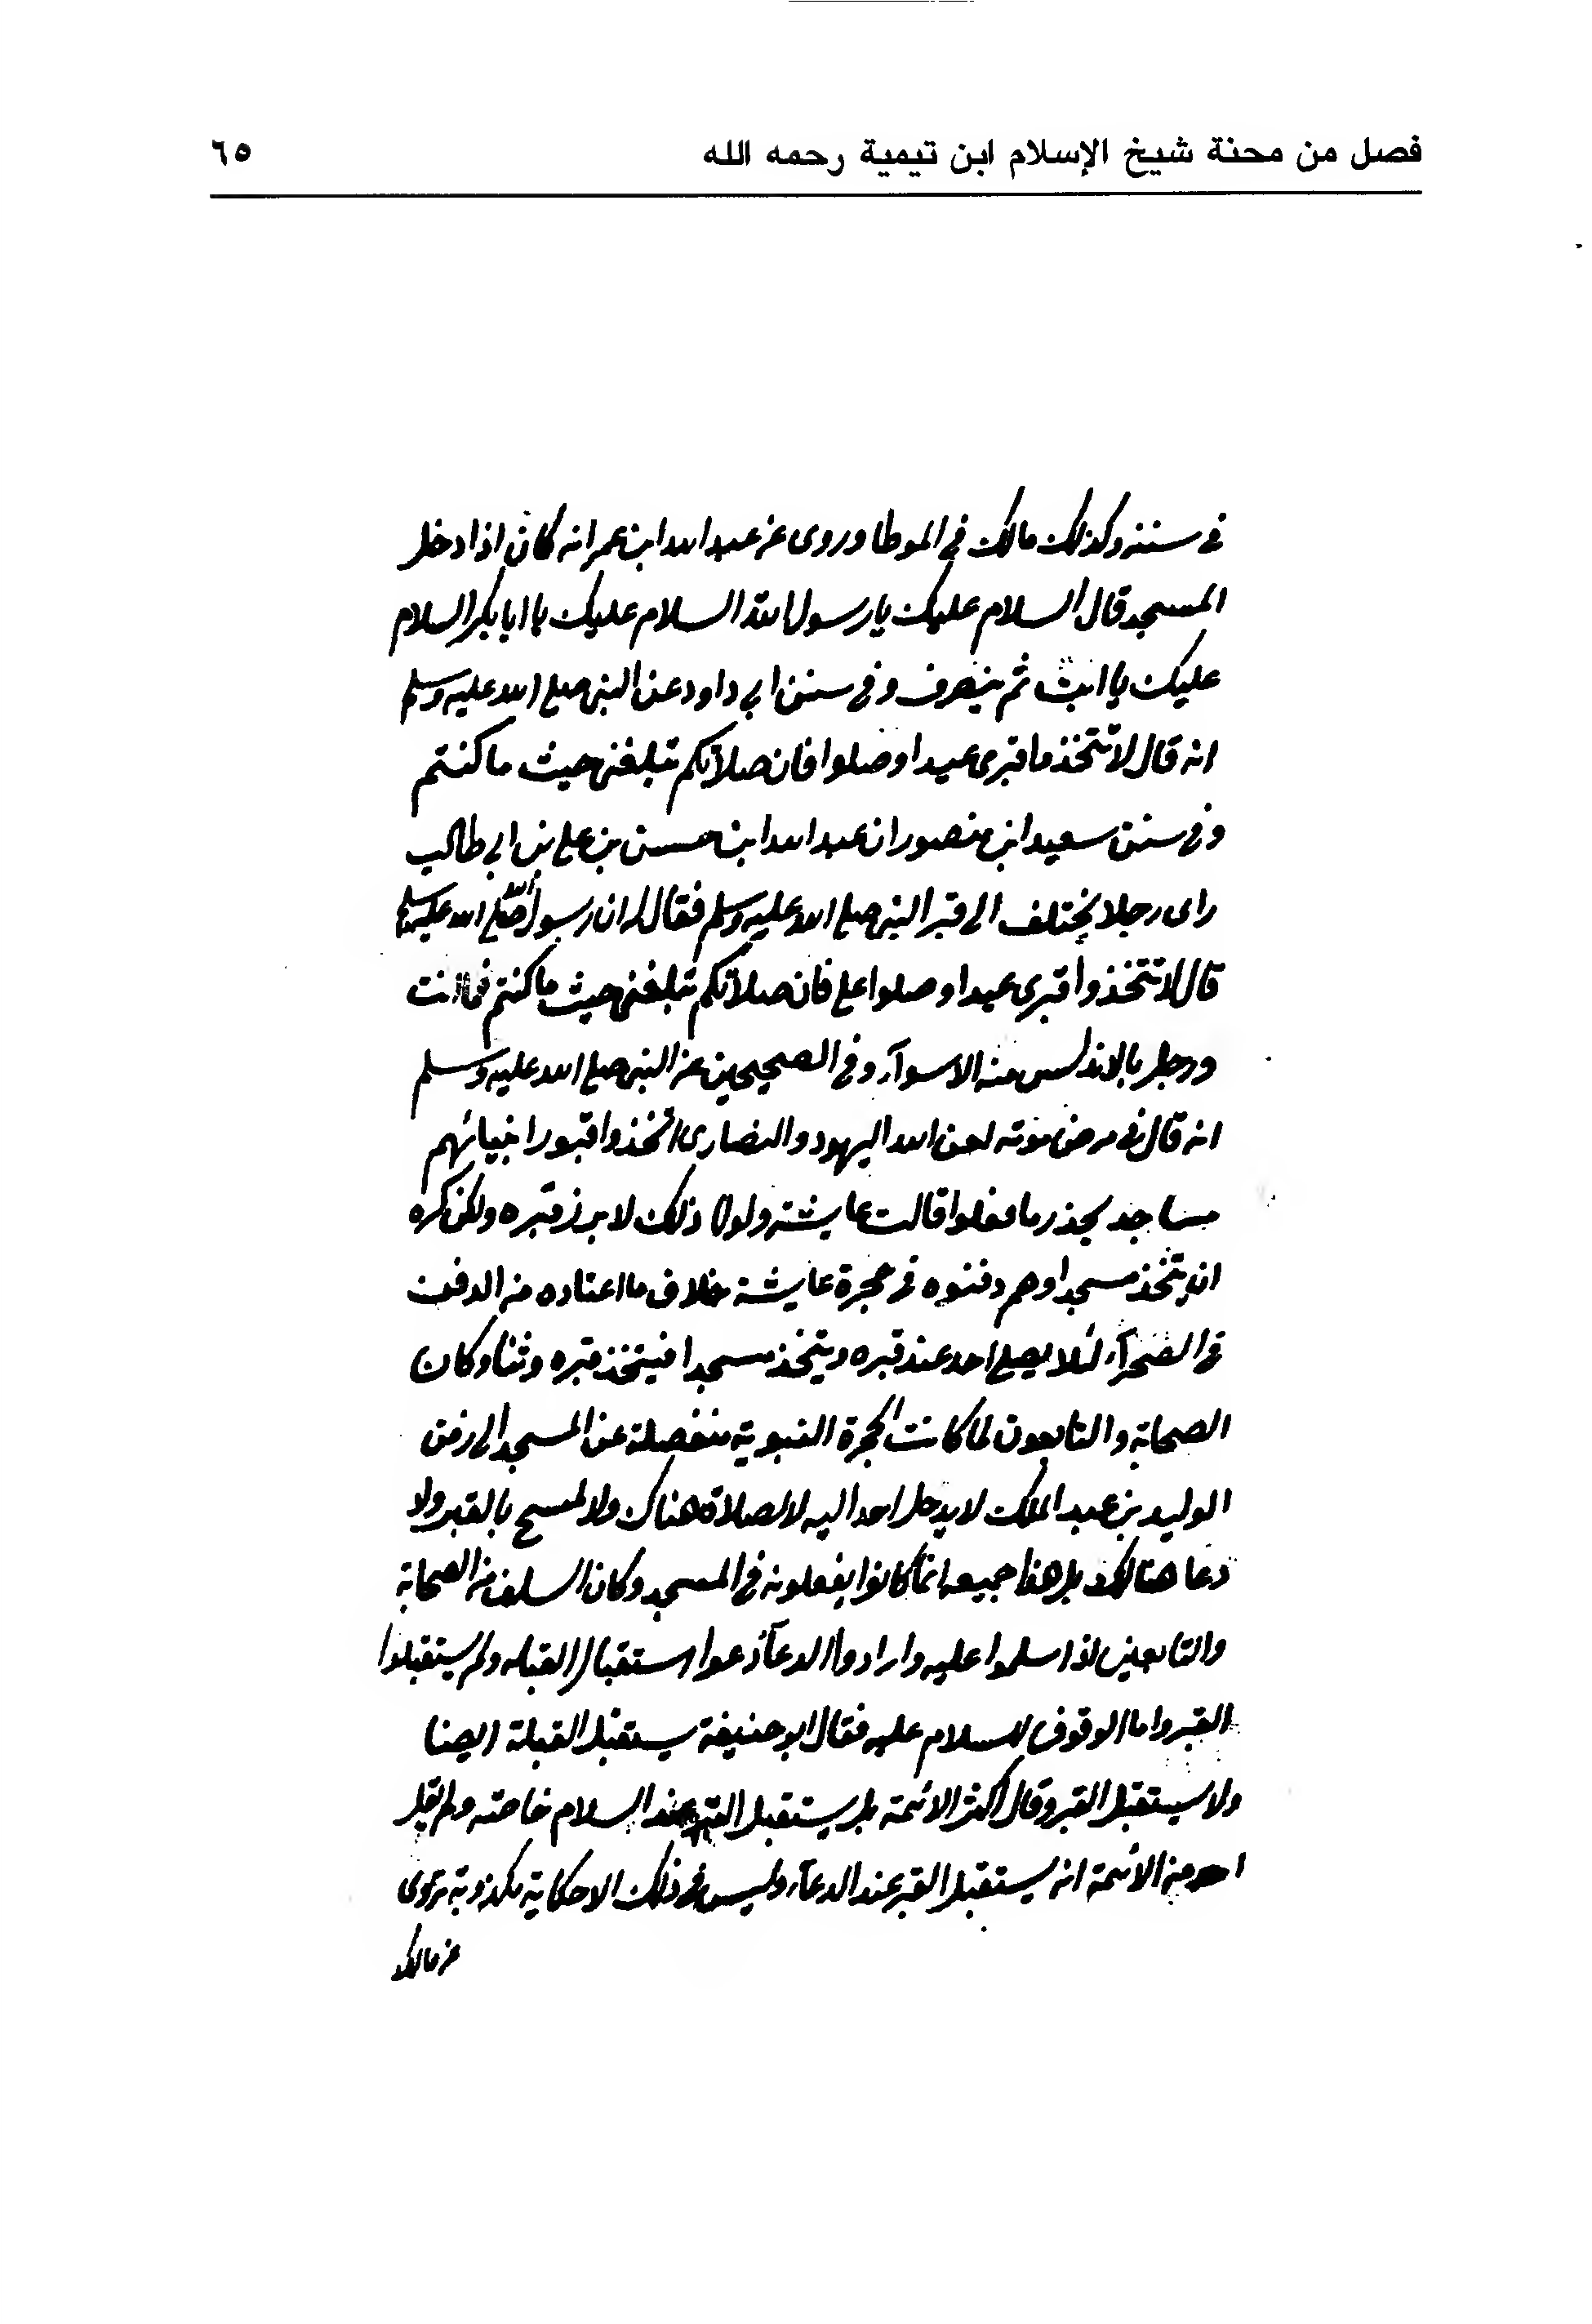 فصل من محنة شيخ الإسلام ابن تيمية رحمه الله
٦٥
في سننه وكذلك مالك في الموطا وروى عن عبد الله ابن عمر انه كان اذا دخل
المسجد قال السلام عليك يا رسول الله السلام عليك يا ابا بكر السلام
عليك يا ابت ثم ينصرف وفي سنن ابي داود عن النبي صلى الله عليه وسلم
انه قال لا تتخذوا قبري عيدا وصلوا فان صلاتكم تبلغني حيث ما كنتم
وفي سنن سعيد ابن منصور ان عبد الله ابن حسن بن علي بن ابي طالب
راى رجلا يختلف الى قبر النبي صلى الله عليه وسلم فقال له ان رسول الله صلى الله عليه وسلم
قال لا تتخذوا قبري عيدا وصلوا علي فان صلاتكم تبلغني حيث ما كنتم فما انت
ورجل بالاندلس منه الا سوآء وفي الصحيحين عن النبي صلى الله عليه وسلم
انه قال في مرض موته لعن الله اليهود والنصارى اتخذوا قبور انبيائهم
مساجد يحذر ما فعلوا قالت عايشة ولولا ذلك لابرز قبره ولكن كره
ان يتخذ مسجدا وهم دفنوه في حجرة عايشة خلاف ما اعتاده من الدفن
في الصحرآء لئلا يصلي احد عند قبره ويتخذ مسجدا فيتخذ قبره وثنا وكان
الصحابة والتابعون لما كانت الحجرة النبوية منفصلة عن المسجد الى زمن
الوليد بن عبد الملك لا يدخل احد اليه لا لصلاة هناك ولا لمسح بالقبر ولا
دعا هنالك بل هذا جميعه انما كانوا يفعلونه في المسجد وكان السلف من الصحابة
والتابعين اذا سلموا عليه وارادوا الدعآ دعوا استقبال القبله ولم يستقبلوا
القبر واما الوقوف للسلام عليه فقال ابو حنيفة يستقبل القبلة ايضا
ولا يستقبل القبر وقال اكثر الائمة بل يستقبل القبر عند السلام خاصة ولم يقل
احد من الائمة انه يستقبل القبر عند الدعآء وليس في ذلك الا حكاية مكذوبة تروى
عن مالك